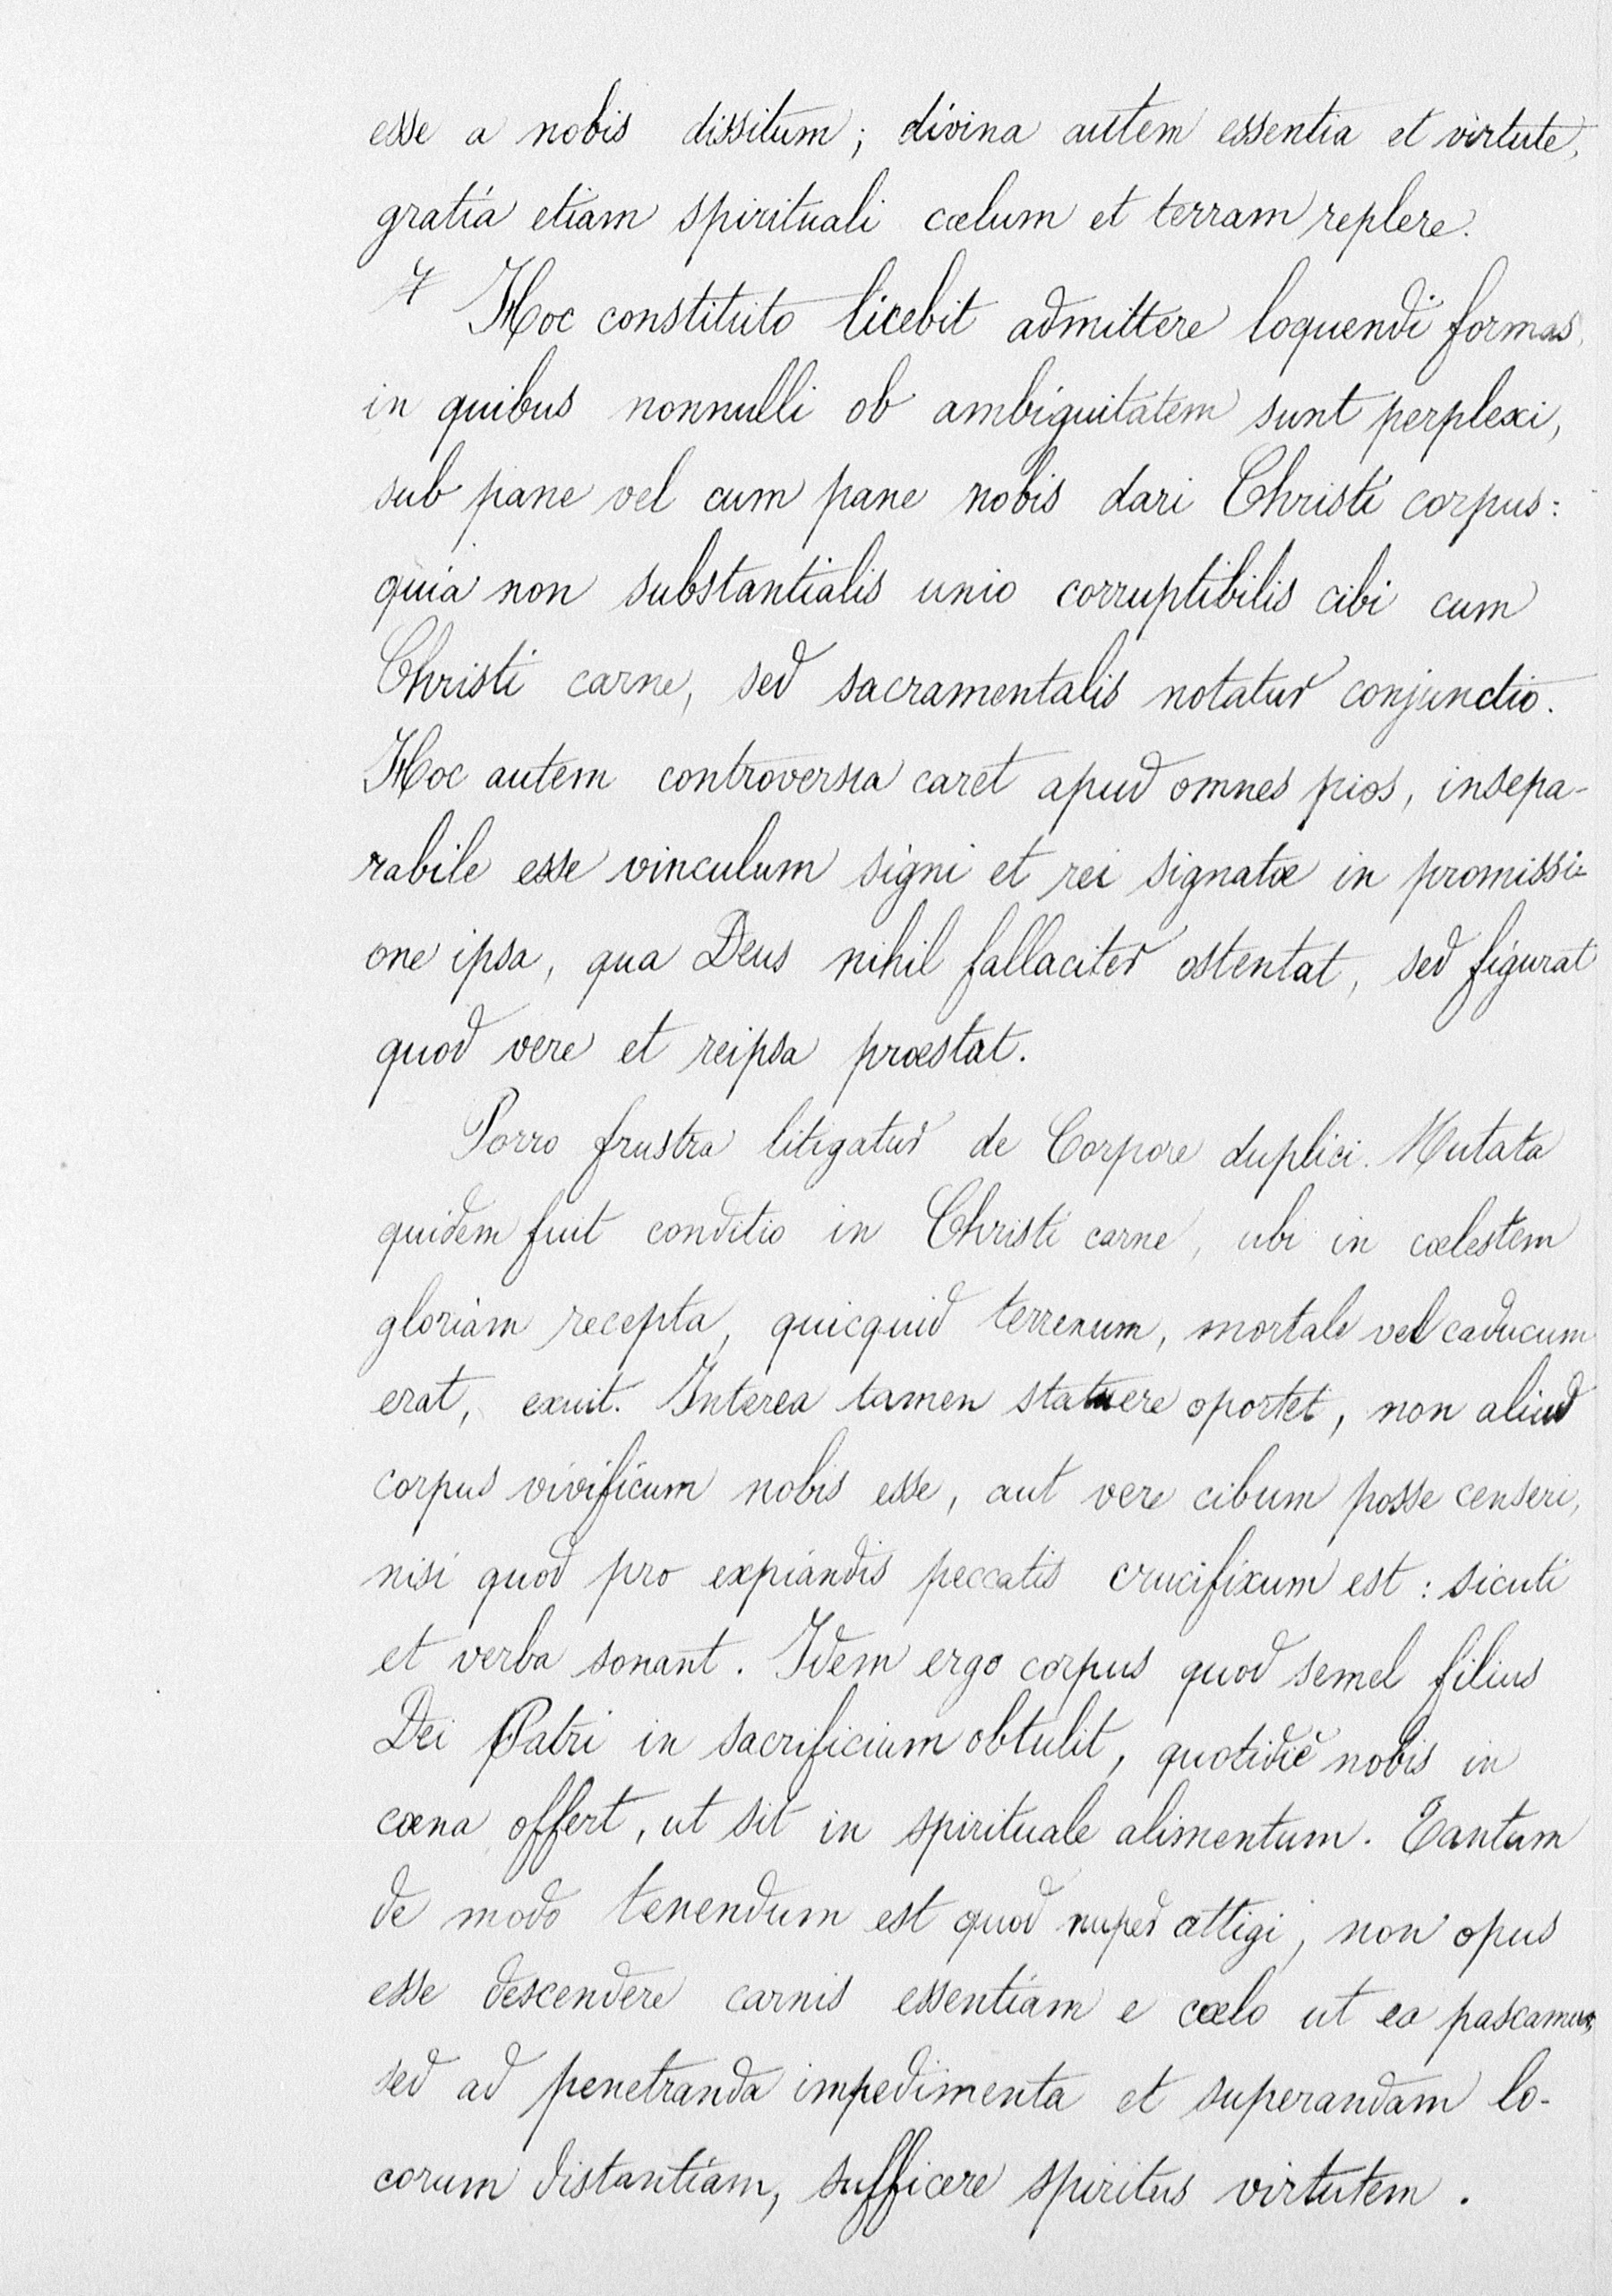 esse a nobis dissitum; divina autem essentia et virtute,
gratia etiam spirituali cœlum et terram replere.
Hoc constituto licebit admittere loquendi formas,
in quibus nonnulli ob ambiguitatem sunt perplexi,
sub pane vel cum pane nobis dari Christi corpus:
quia non substantialis unio corruptibilis cibi cum
Christi carne, sed sacramentalis notatur conjunctio.
Hoc autem controversia caret apud omnes pios, insepa-
rabile esse vinculum signi et rei signatæ in promissi-
one ipsa, qua Deus nihil fallaciter ostentat, sed figurat
quod vere et reipsa præstat.
Porro frustra litigatur de Corpore duplici. Mutata
quidem fuit conditio in Christi carne, ubi in cœlestem
gloriam recepta, quicquid terrenum, mortale vel caducum
erat, exuit. Interea tamen statuere oportet, non aliud
corpus vivificum nobis esse, aut vere cibum posse censeri,
nisi quod pro expiandis peccatis crucifixum est: sicuti
et verba sonant. Idem ergo corpus quod semel filius
Dei Patri in sacrificium obtulit, quotidiè nobis in
cœna offert, ut sit in spirituale alimentum. Tantum
de modo tenendum est quod nuper attigi, non opus
esse descendere carnis essentiam e cœlo ut ea pascamur,
sed ad penetranda impedimenta et superandam lo-
corum distantiam, sufficere spiritus virtutem.